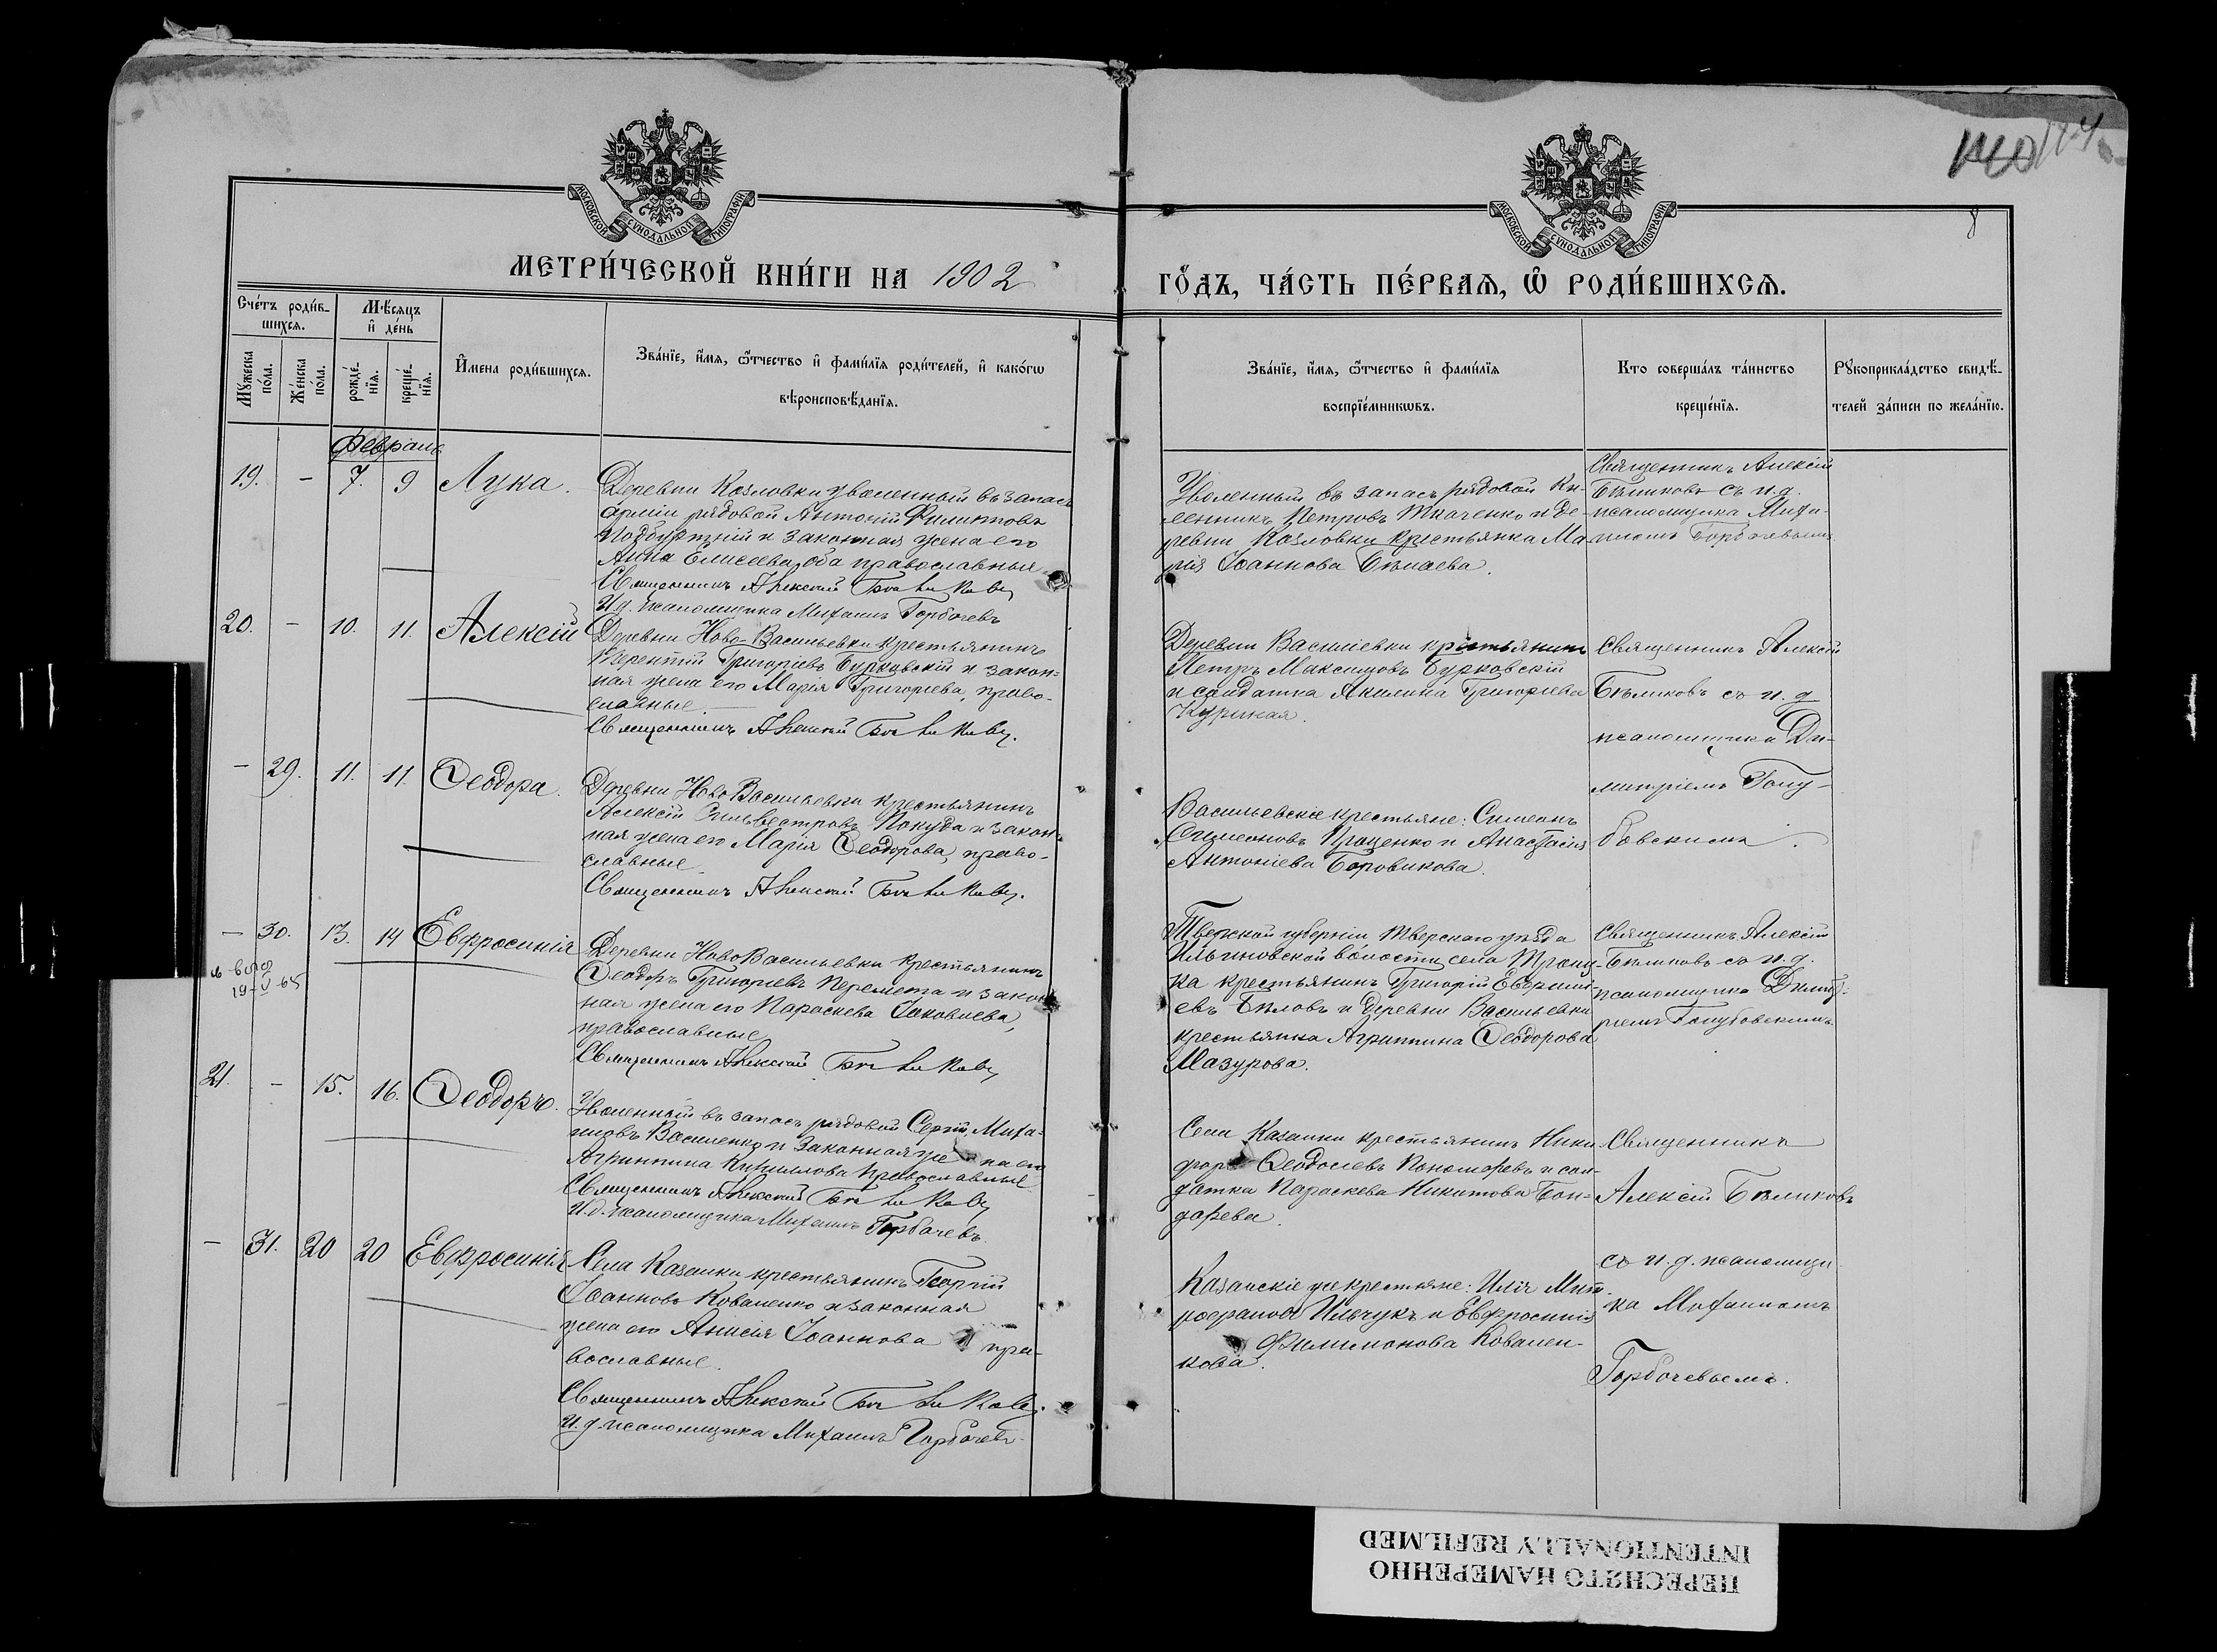 140 174
8
МОСКОВСКОЙ СѴНОДАЛЬНОЙ ТИПОГРАФІИ
МОСКОВСКОЙ СѴНОДАЛЬНОЙ ТИПОГРАФІИ
МЕТРИ́ЧЕСКОЙ КНИ́ГИ НА 1902
ГО́ДЪ, ЧА́СТЬ ПЕ́РВАѦ, Ѽ РОДИ́ВШИХСѦ.
Сче́тъ роди́в-
шихсѧ.
Мѣ́сѧцъ
и҆ де́нь
Мꙋ́жеска по́ла.
Же́нска по́ла.
рожде́-
нїѧ.
креще́-
нїѧ.
И҆́мена роди́вшихсѧ.
Зва́нїе, и҆́мѧ, ѻ҆́тчество и҆ фами́лїѧ роди́телей, и҆ како́гѡ
вѣроисповѣ́данїѧ.
Зва́нїе, и҆́мѧ, ѻ҆́тчество и҆ фами́лїѧ
воспрїе́мникѡвъ.
Кто соверша́лъ та́инство
креще́нїѧ.
Рꙋкоприкла́дство свидѣ́-
телей за́писи по жела́нїю.
Февраль
19. - 7. 9 Лука.
Деревни Козловки уволенный въ запасъ
арміи рядовой Антоній Филипповъ
Подбуртній и законная жена его
Анна Елисеева, оба православные
Священникъ Алексій Бѣликовъ
И.д. псаломщика Михаилъ Горбачевъ
Уволенный въ запасъ рядовой Ки-
Петровъ Ткаченко и де-
ревни Козловки крестьянка Ма-
рія Іоаннова Бѣлаева.
Священникъ Алексій
Бѣликовъ съ и.д.
псаломщика Миха-
иломъ Горбачевымъ
20. - 10. 11. Алексій
Деревни Ново-Васильевки крестьянинъ
Терентій Григоріевъ Бурковскій и закон-
ная жена его Марія Григорьева, право-
славные.
Священникъ Алексій Бѣликовъ.
Деревни Василіевки крестьянинъ
Петръ Максимовъ Бурковскій
и солдатка Акилина Григоріева
Курикая.
Священникъ Алексій
Бѣликовъ съ и.д
псаломщика Ди-
митріемъ Голу-
бовскимъ.
- 29. 11. 11. Ѳеодора.
Деревни НовоВасильевки крестьянинъ
Алексій Сильвестровъ Покуда и закон-
ная жена его Марія Ѳеодорова, право-
славные.
Священникъ Алексій Бѣликовъ.
Васильевскіе крестьяне: Симеонъ
Симеоновъ Проценко и Анастасія
Антоніева Боровикова.
- 30. 13. 14 Евфросинія
19-V-65
Деревни НовоВасильевки крестьянинъ
Ѳеодоръ Григорьевъ Перемета и закон-
ная жена его Параскева Іаковлева,
православные
Священникъ Алексій Бѣликовъ
Тверской губерніи Тверскаго уѣзда
Ильиновской волости села Трону-
ха крестьянинъ Григорій Ефрим-
евъ Бѣловъ и деревни Васильевки
крестьянка Агриппина Ѳеодорова
Мазурова.
Священникъ Алексій
Бѣликовъ съ и.д.
псаломщика Димит-
ріемъ Голубовскимъ
21. - 15. 16. Ѳеодоръ.
Уволенный въ запасъ рядовой Сергій Миха-
иловъ Василенко и законная жена его
Агриппина Кириллова православные
Священникъ Алексій Бѣликовъ
И.д. псаломщика Михаилъ Горбачевъ.
Села Казанки крестьянинъ Ники-
форъ Ѳеодосіевъ Пономаревъ и сол-
датка Параскева Никитова Бон-
дарева.
Священникъ
Алексій Бѣликовъ
съ и.д. псаломщи-
ка Михаиломъ
Горбачевымъ.
- 31. 20 20 Евфросинія
Села Казанки крестьянинъ Георгій
Іоанновъ Коваленко и законная
жена его Анисія Іоаннова пра-
вославные.
Священникъ Алексій Бѣликовъ.
И.д. псаломщика Михаилъ Горбачевъ.
Казанскіе же крестьяне: Илія Мит-
рофановъ Ильчукъ и Евфросинія
Филимонова Ковален-
кова.
ПЕРЕСНЯТО НАМЕРЕННО
INTENTIONALLY REFILMED